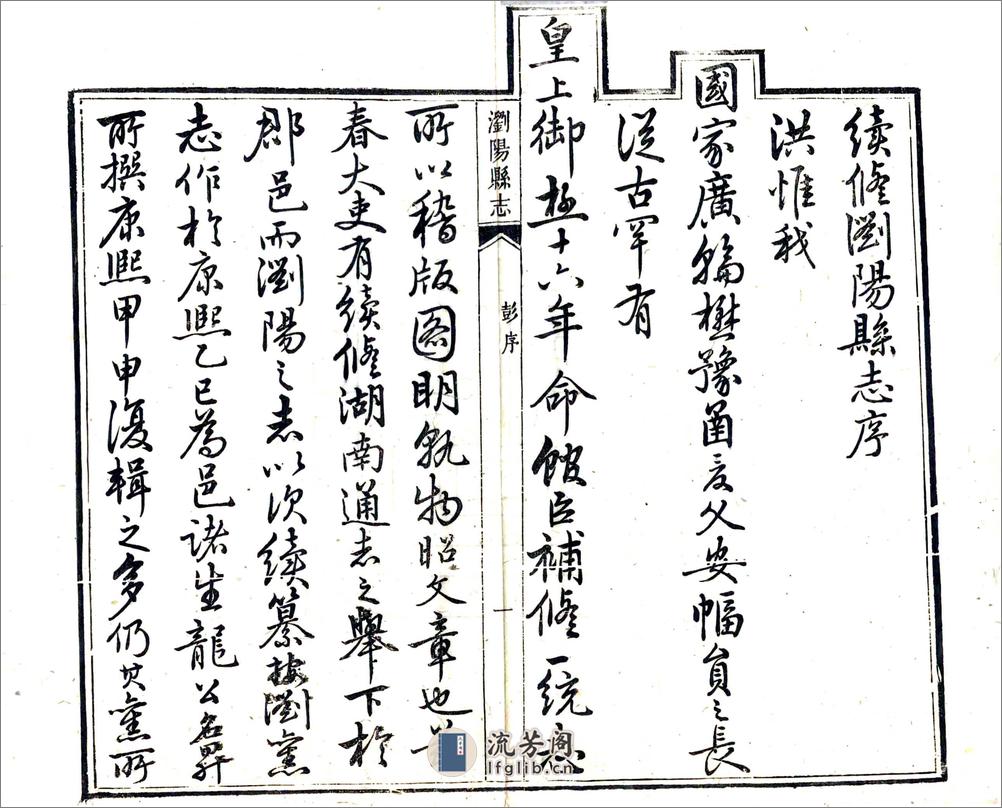 續修瀏陽縣志序
洪惟我
國家廣輪楙豫函夏乂安幅員之長
從古罕有
皇上御極十六年命館臣補修一統志
瀏陽縣志
彭序
一
所以稽版圖明軌物昭文章也
春大吏有續修湖南通志之舉下於
郡邑而瀏陽之志以次續纂按瀏舊
志作於康熙乙巳為邑諸生龍公名昇
所撰康熙甲申復輯之多仍其舊所
流芳阁
lfglib.cn